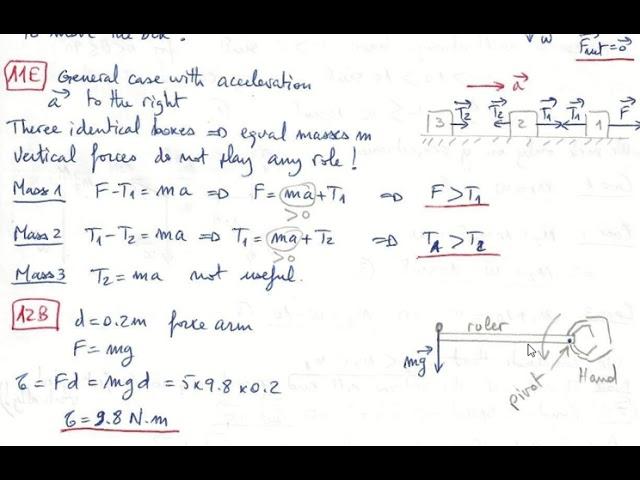 to move the box.
w⃗
F⃗net = 0⃗
11E General case with acceleration
a⃗ to the right
Three identical boxes => equal masses m
Vertical forces do not play any role!
a⃗
3 T⃗2 T⃗2 2 T⃗1 T⃗1 1 F⃗
Mass 1 F-T1 = ma => F = ma+T1 => F > T1
>0
Mass 2 T1-T2 = ma => T1 = ma+T2 => T1 > T2
>0
Mass 3 T2 = ma not useful.
12B d = 0.2m force arm
F = mg
τ = Fd = mgd = 5x9.8x0.2
τ = 9.8 N.m
ruler
mg⃗
pivot
Hand